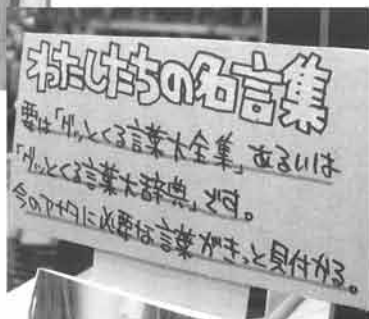 わたしたちの名言集
要は「グッとくる言葉大全集」あるいは
「グッとくる言葉大辞典」です。
今のアナタに必要な言葉がきっと見付かる。